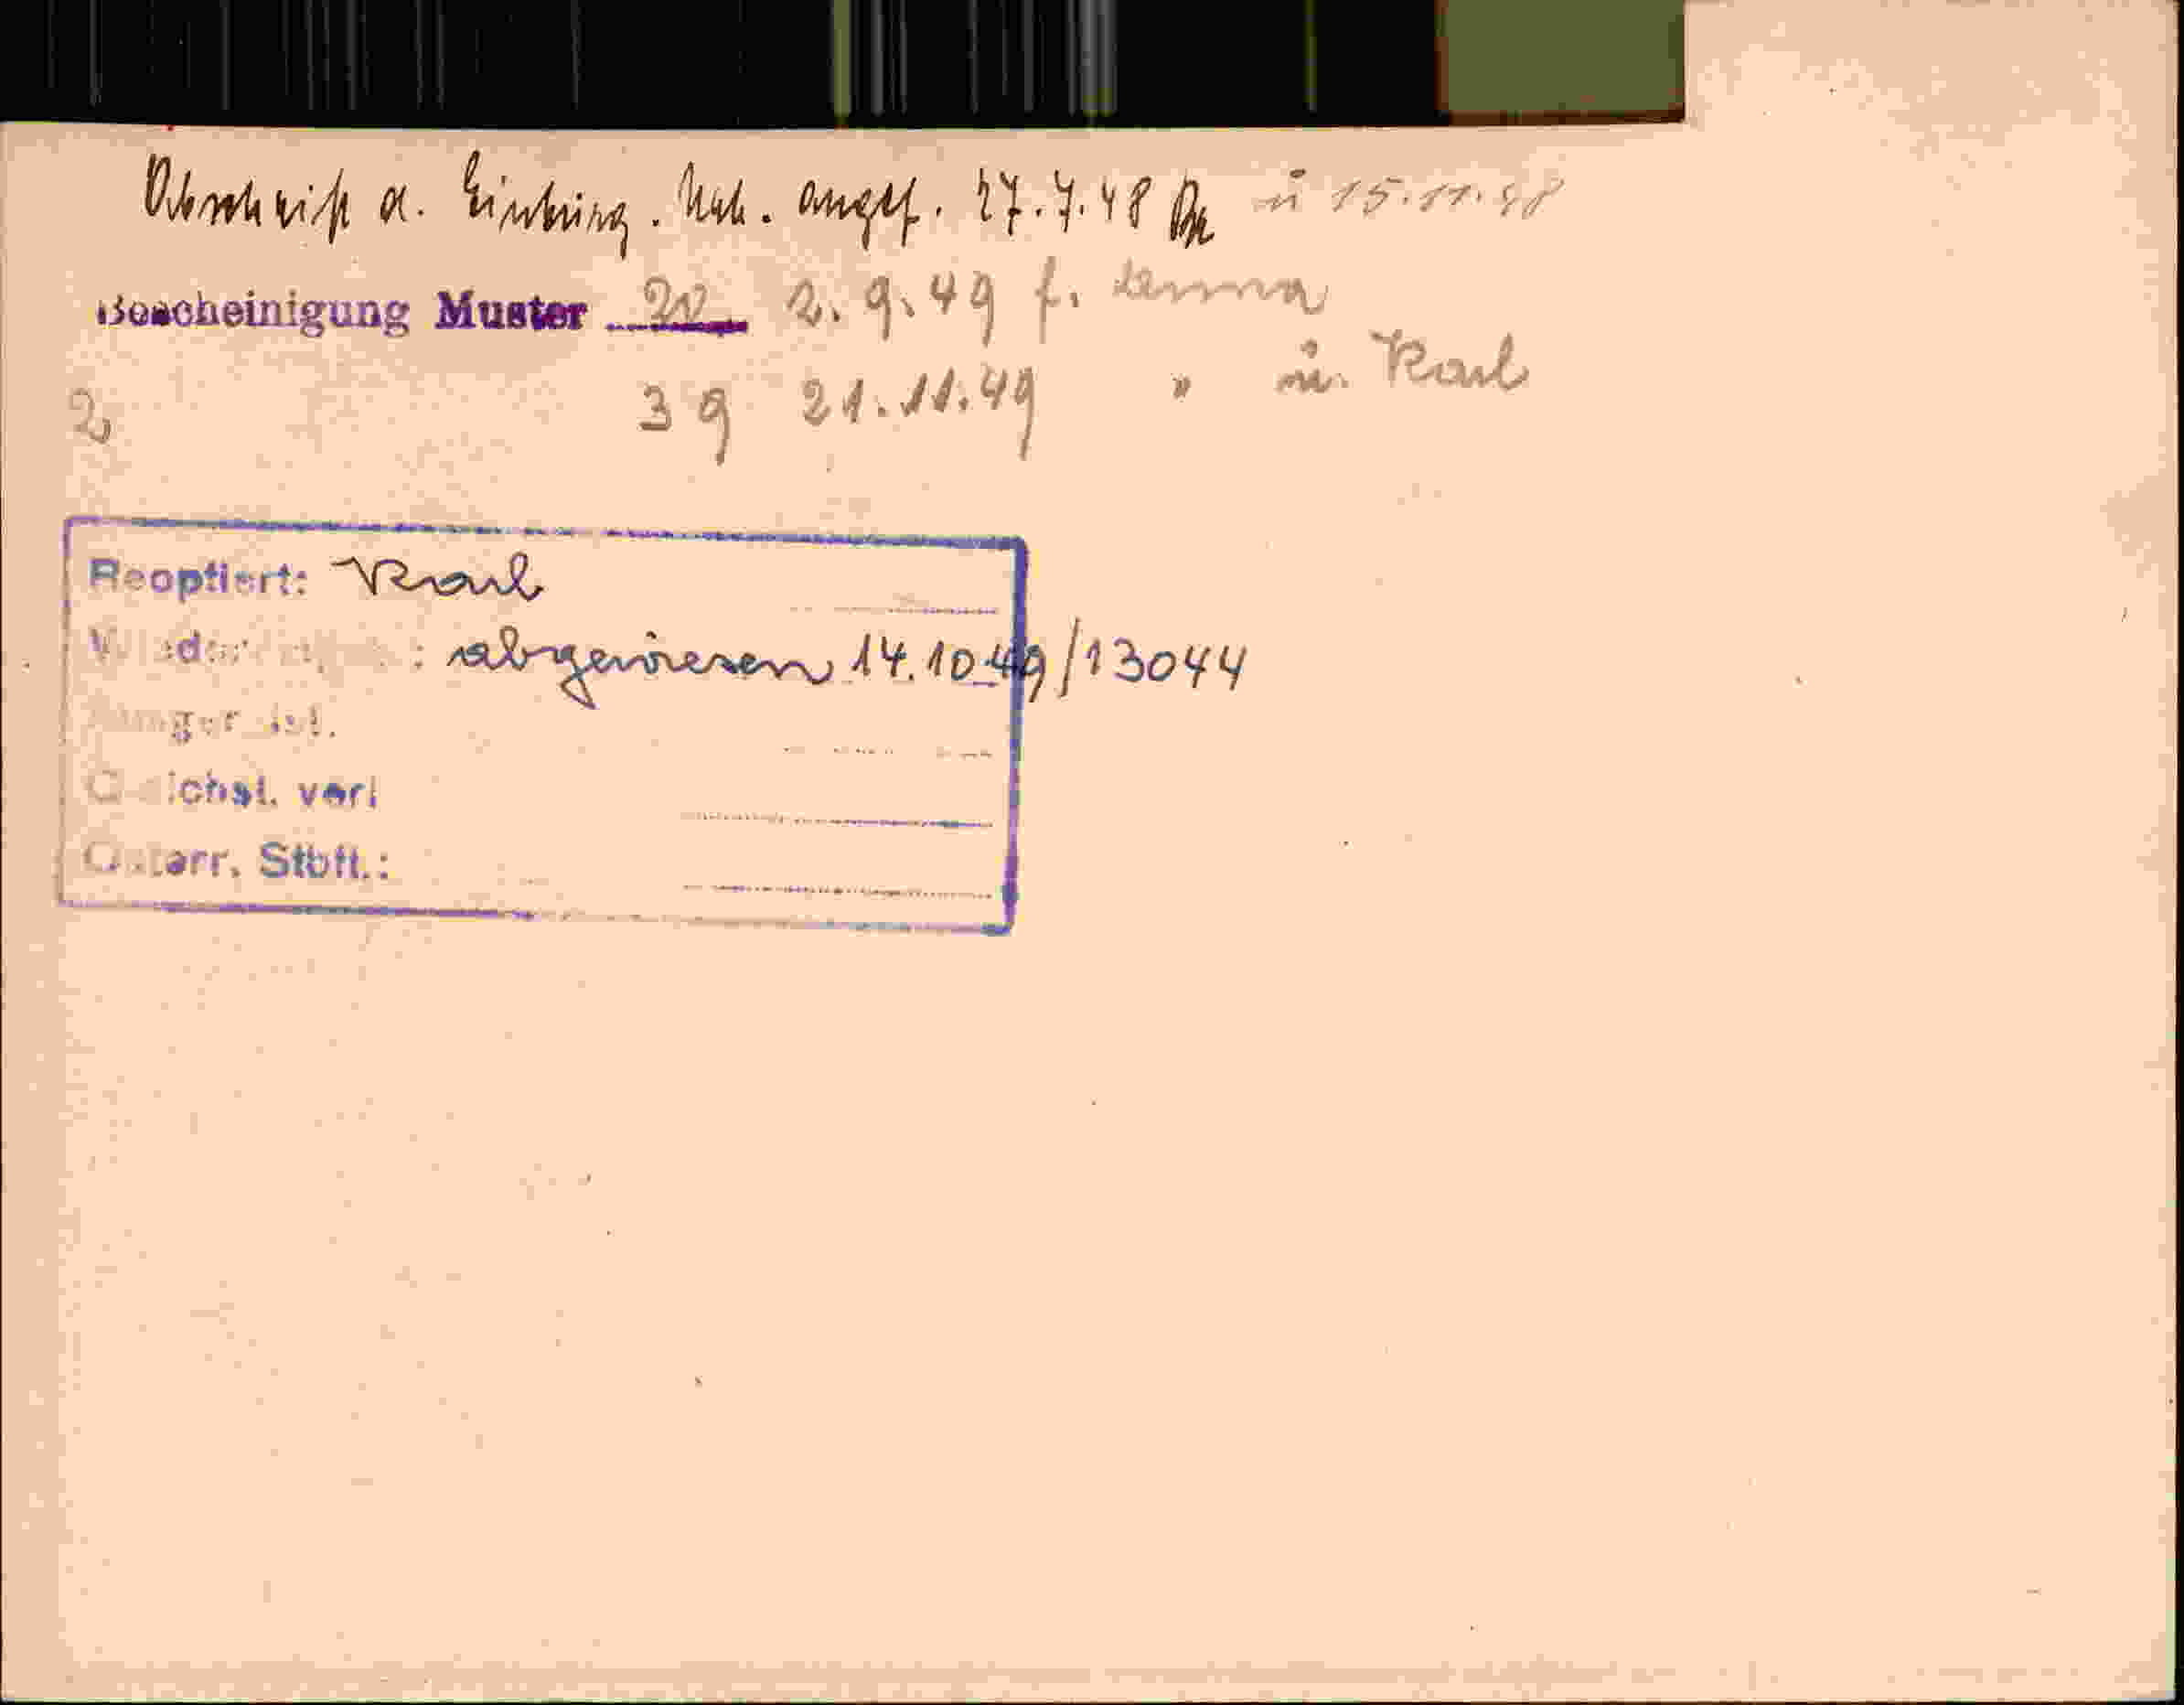 Abschrift d. Einbürg. Urk. angef. 27.7.48 u 15.11.48
Bescheinigung Muster 20 2.9.49 f. Anna
2, 39 21.11.49 " u. Karl
Reoptiert: Karl
: abgewiesen 14.10.49/13044
verl
Österr. Stbft.: